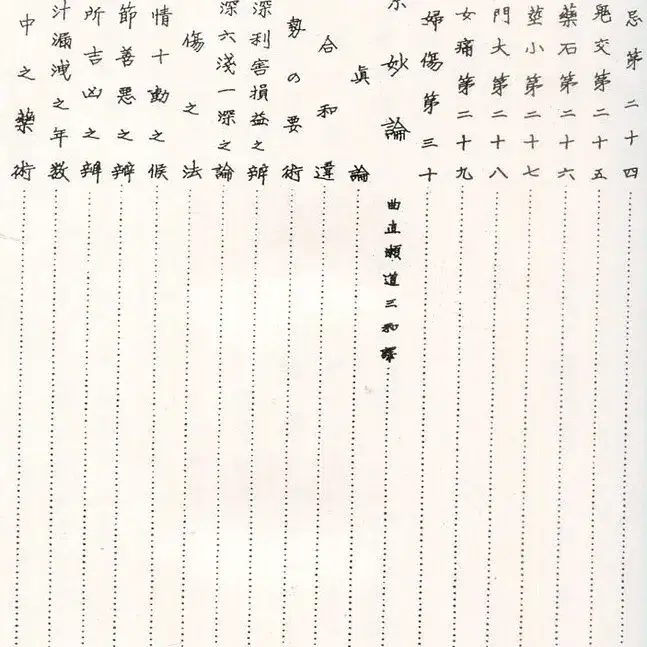 忌第二十四
鬼交第二十五
藥石第二十六
莖小第二十七
門大第二十八
女痛第二十九
婦傷第三十
妙論 曲直瀬道三和譯
眞論
合和違
勢の要術
深利害損益之辨
深六淺一深之論
傷之法
情十動之候
節善悪之辨
所吉凶之辨
汁漏洩之年数
中之藥術